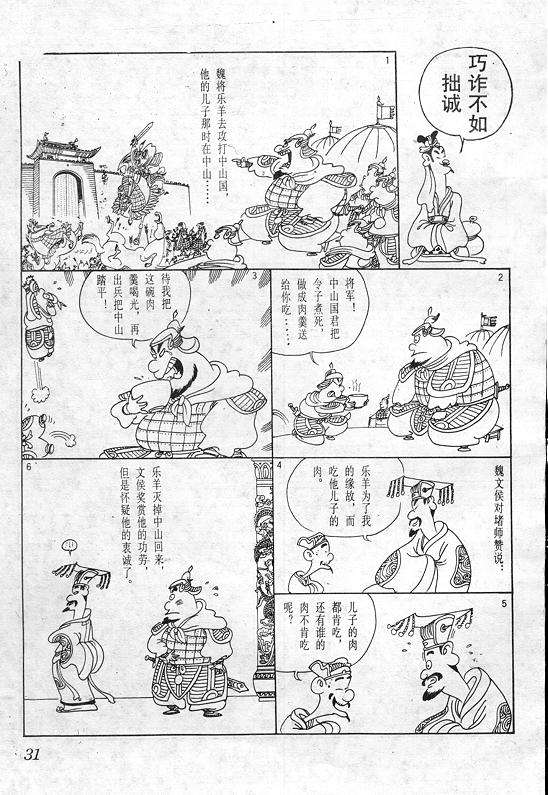 巧诈不如
拙诚
1
魏将乐羊去攻打中山国，
他的儿子那时在中山……
2
将军！
中山国君把
令子煮死，
做成肉羹送
给你吃……
3
待我把
这碗肉
羹喝光，再
出兵把中山
踏平！
魏文侯对堵师赞说：
4
乐羊为了我
的缘故，而
吃他儿子的
肉。
5
儿子的肉
都肯吃，
还有谁的
肉不肯吃
呢？
6
乐羊灭掉中山回来，
文侯奖赏他的功劳，
但是怀疑他的衷诚了。
31